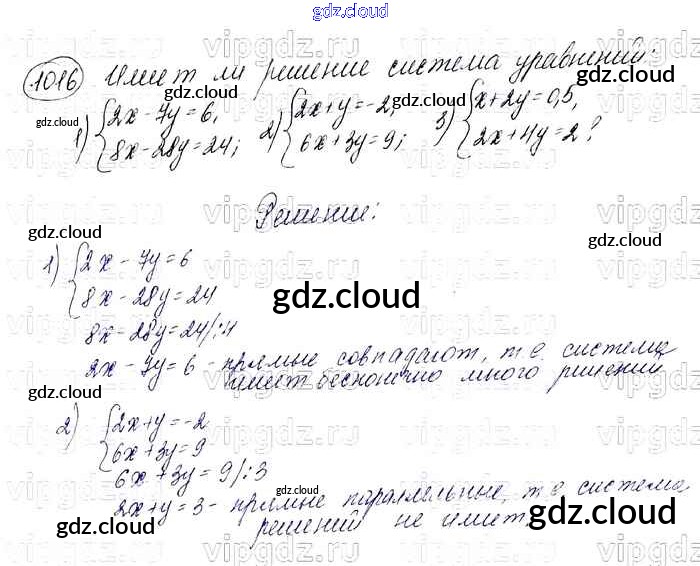 gdz.cloud
vipgdz.ru vipgdz.ru vipgdz.ru
1016 Имеет ли решение система уравнений:
gdz.cloud gdz.cloud gdz.cloud
1) {2x - 7y = 6, 2) {2x + y = -2, 3) {x + 2y = 0,5,
8x - 28y = 24; 6x + 3y = 9; 2x + 4y = 2?
vipgdz.ru vipgdz.ru vipgdz.ru
Решение:
gdz.cloud gdz.cloud
1) {2x - 7y = 6
8x - 28y = 24
gdz.cloud
8x - 28y = 24 /:4
2x - 7y = 6 - прямые совпадают, т.е. система
имеет бесконечно много решений
gdz.cloud gdz.cloud
2) {2x + y = -2
6x + 3y = 9
6x + 3y = 9 /:3
2x + y = 3 - прямые параллельные, т.е. система
решений не имеет.
gdz.cloud gdz.cloud gdz.cloud